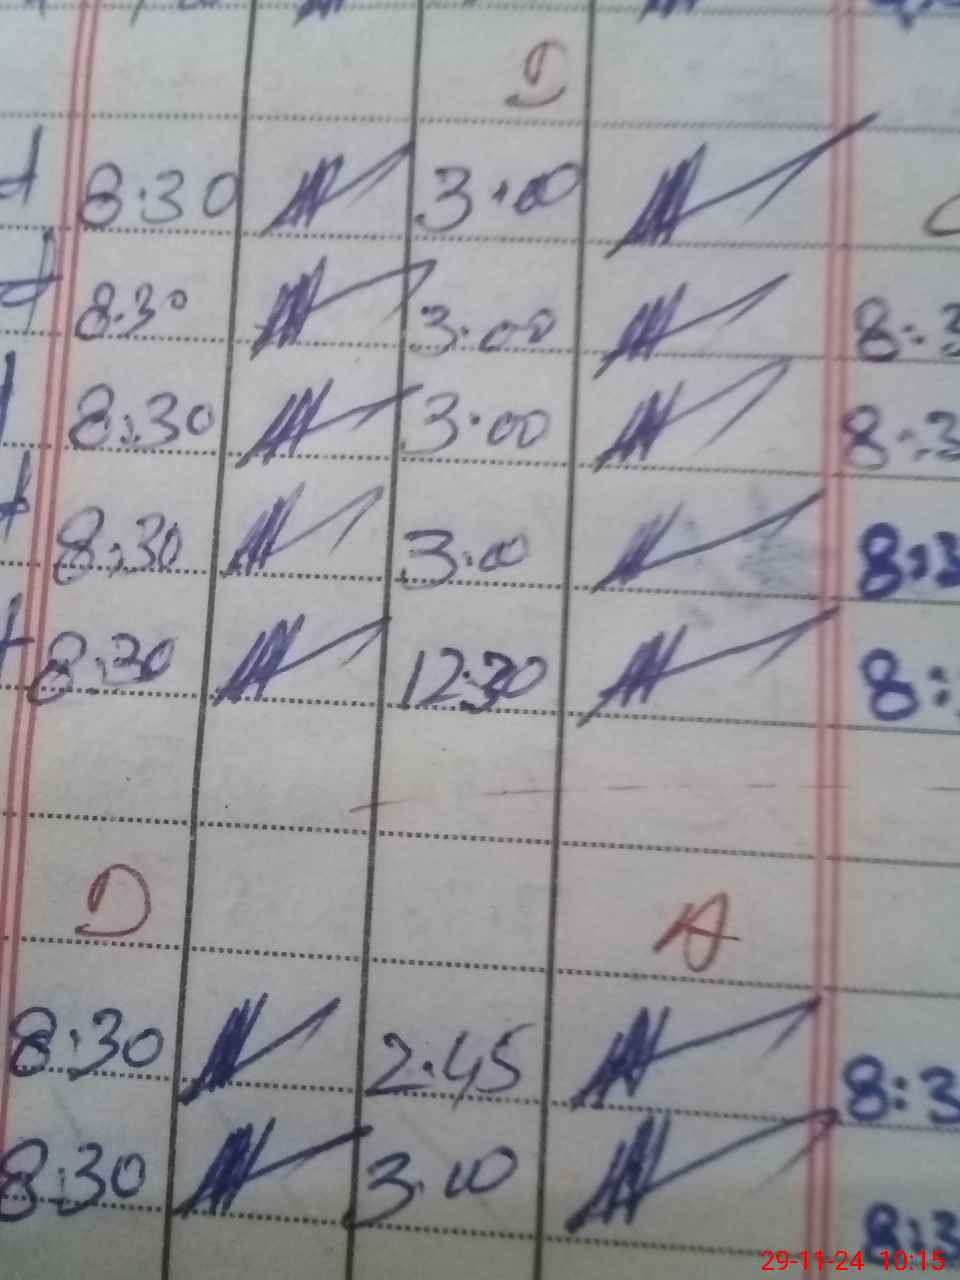 D
8:30 3:00
8:30 3:00 8:3
8:30 3:00 8:3
8:30 3:00 8:3
8:30 12:30 8:
D A
8:30 2:45 8:3
8:30 3:00 8:3
29-11-24 10:15